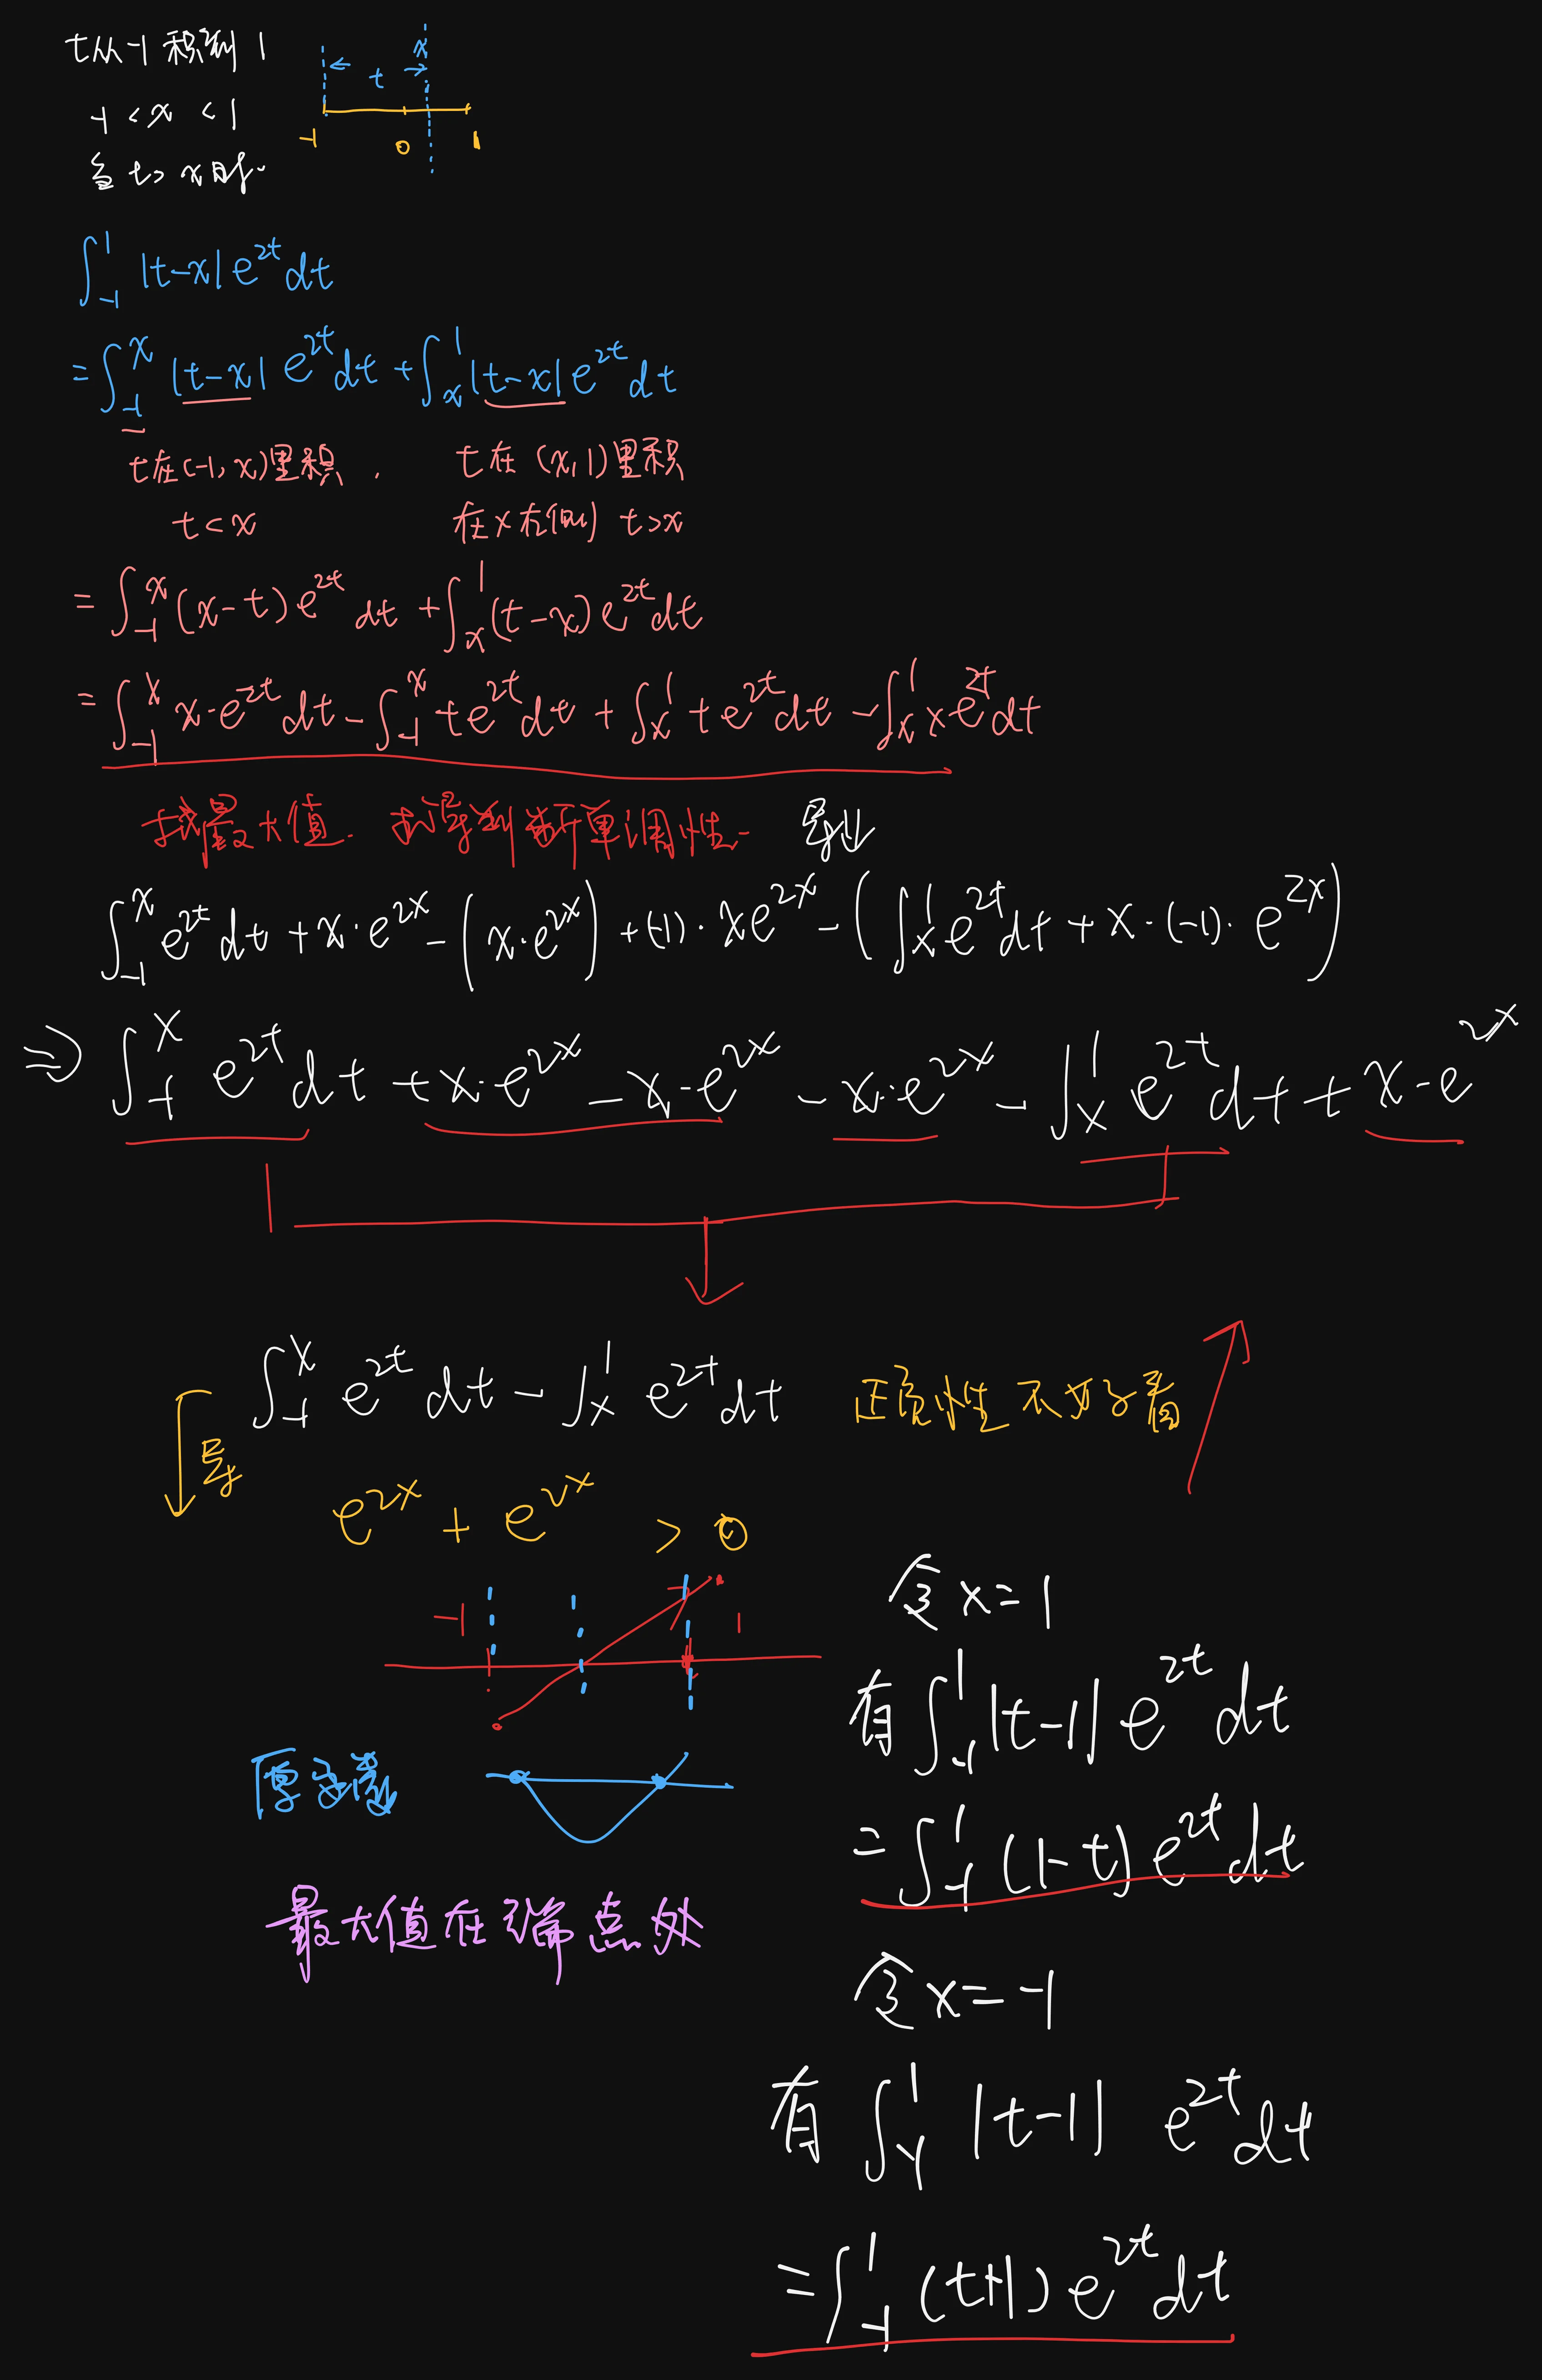 t从-1积到1
-1<x<1
当t>x时.
← t → x
-1 0 1
∫_{-1}^{1} |t-x| e^{2t} dt
= ∫_{-1}^{x} |t-x| e^{2t} dt + ∫_{x}^{1} |t-x| e^{2t} dt
t在(-1,x)里积. t在(x,1)里积
t<x 在x右侧 t>x
= ∫_{-1}^{x} (x-t) e^{2t} dt + ∫_{x}^{1} (t-x) e^{2t} dt
= ∫_{-1}^{x} x·e^{2t} dt - ∫_{-1}^{x} t e^{2t} dt + ∫_{x}^{1} t e^{2t} dt - ∫_{x}^{1} x e^{2t} dt
求最大值. 求导判断单调性. 导↓
∫_{-1}^{x} e^{2t} dt + x·e^{2x} - (x·e^{2x}) + (-1)·x e^{2x} - (∫_{x}^{1} e^{2t} dt + x·(-1)·e^{2x})
⇒ ∫_{-1}^{x} e^{2t} dt + x·e^{2x} - x·e^{2x} - x·e^{2x} - ∫_{x}^{1} e^{2t} dt + x·e^{2x}
∫_{-1}^{x} e^{2t} dt - ∫_{x}^{1} e^{2t} dt 正负性不好看
导
e^{2x} + e^{2x} > 0
-1 1
原函数
最大值在端点处
令 x=1
有 ∫_{-1}^{1} |t-1| e^{2t} dt
= ∫_{-1}^{1} (1-t) e^{2t} dt
令 x=-1
有 ∫_{-1}^{1} |t-1| e^{2t} dt
= ∫_{-1}^{1} (t+1) e^{2t} dt